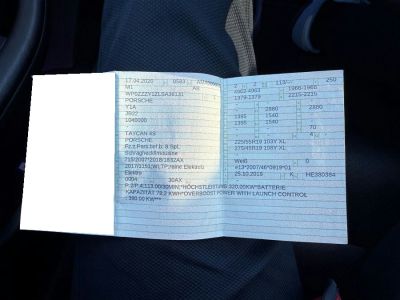 17.04.2020 0583
M1
PORSCHE
Y1A
1040000
TAYCAN 4S
PORSCHE
Fz.z.Pers.bef.b. 8 Spl.
Schräghecklimousine
715/2007*2018/1832AX
Elektro
0004 30AX
P.2/P.4:113,00/30MIN.*HÖCHSTLEISTUNG 320,00KW*BATTERIE
KAPAZITÄT 79,2 KWH*OVERBOOST POWER WITH LAUNCH CONTROL
: 390,00 KW***
2 2 113/ 250
4962-4963 1966-1966
1379-1379 2215-2215
2880 2880
1395 1540
1395 1540
70
4
225/55R19 103Y XL
275/45R19 108Y XL
Weiß 0
25.10.2019 K HE380384